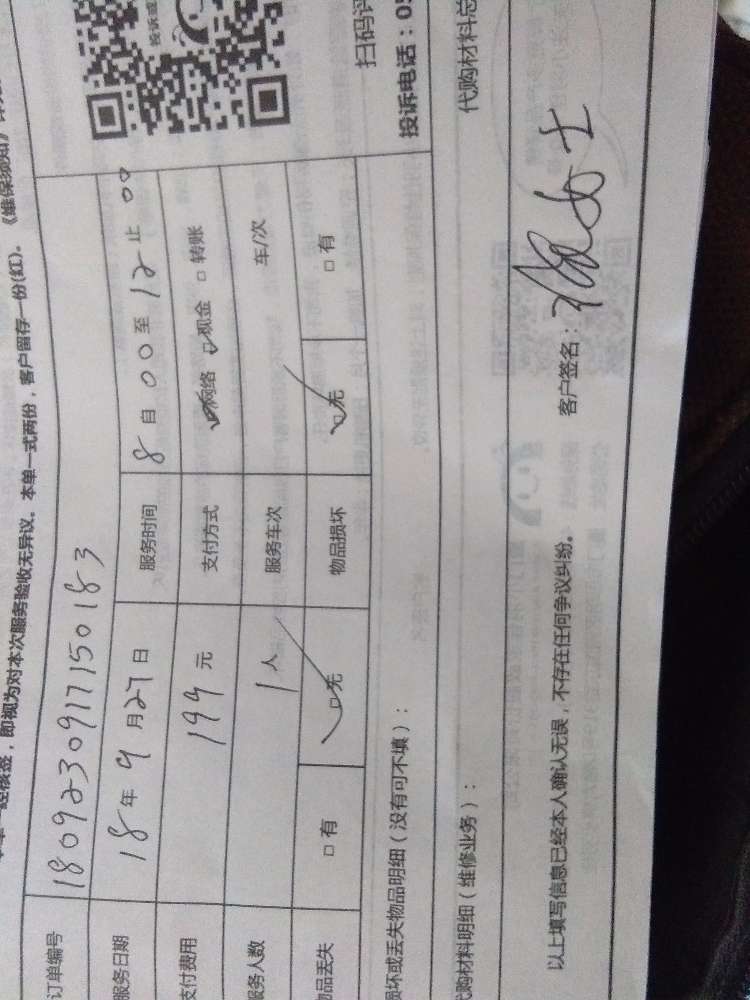 即视为对本次服务验收无异议。本单一式两份，客户留存一份(红)。《维保须知》
订单编号 1809230917150183
服务日期 18年9月27日 服务时间 8自00至12止00
支付费用 199元 支付方式 ☑网络 ☑现金 □转账
服务人数 1人 服务车次 车/次
物品丢失 □有 ☑无 物品损坏 ☑无 □有
投诉或
扫码评
投诉电话：05
损坏或丢失物品明细（没有可不填）：
代购材料明细（维修业务）： 代购材料总
以上填写信息已经本人确认无误，不存在任何争议纠纷。 客户签名： 女士